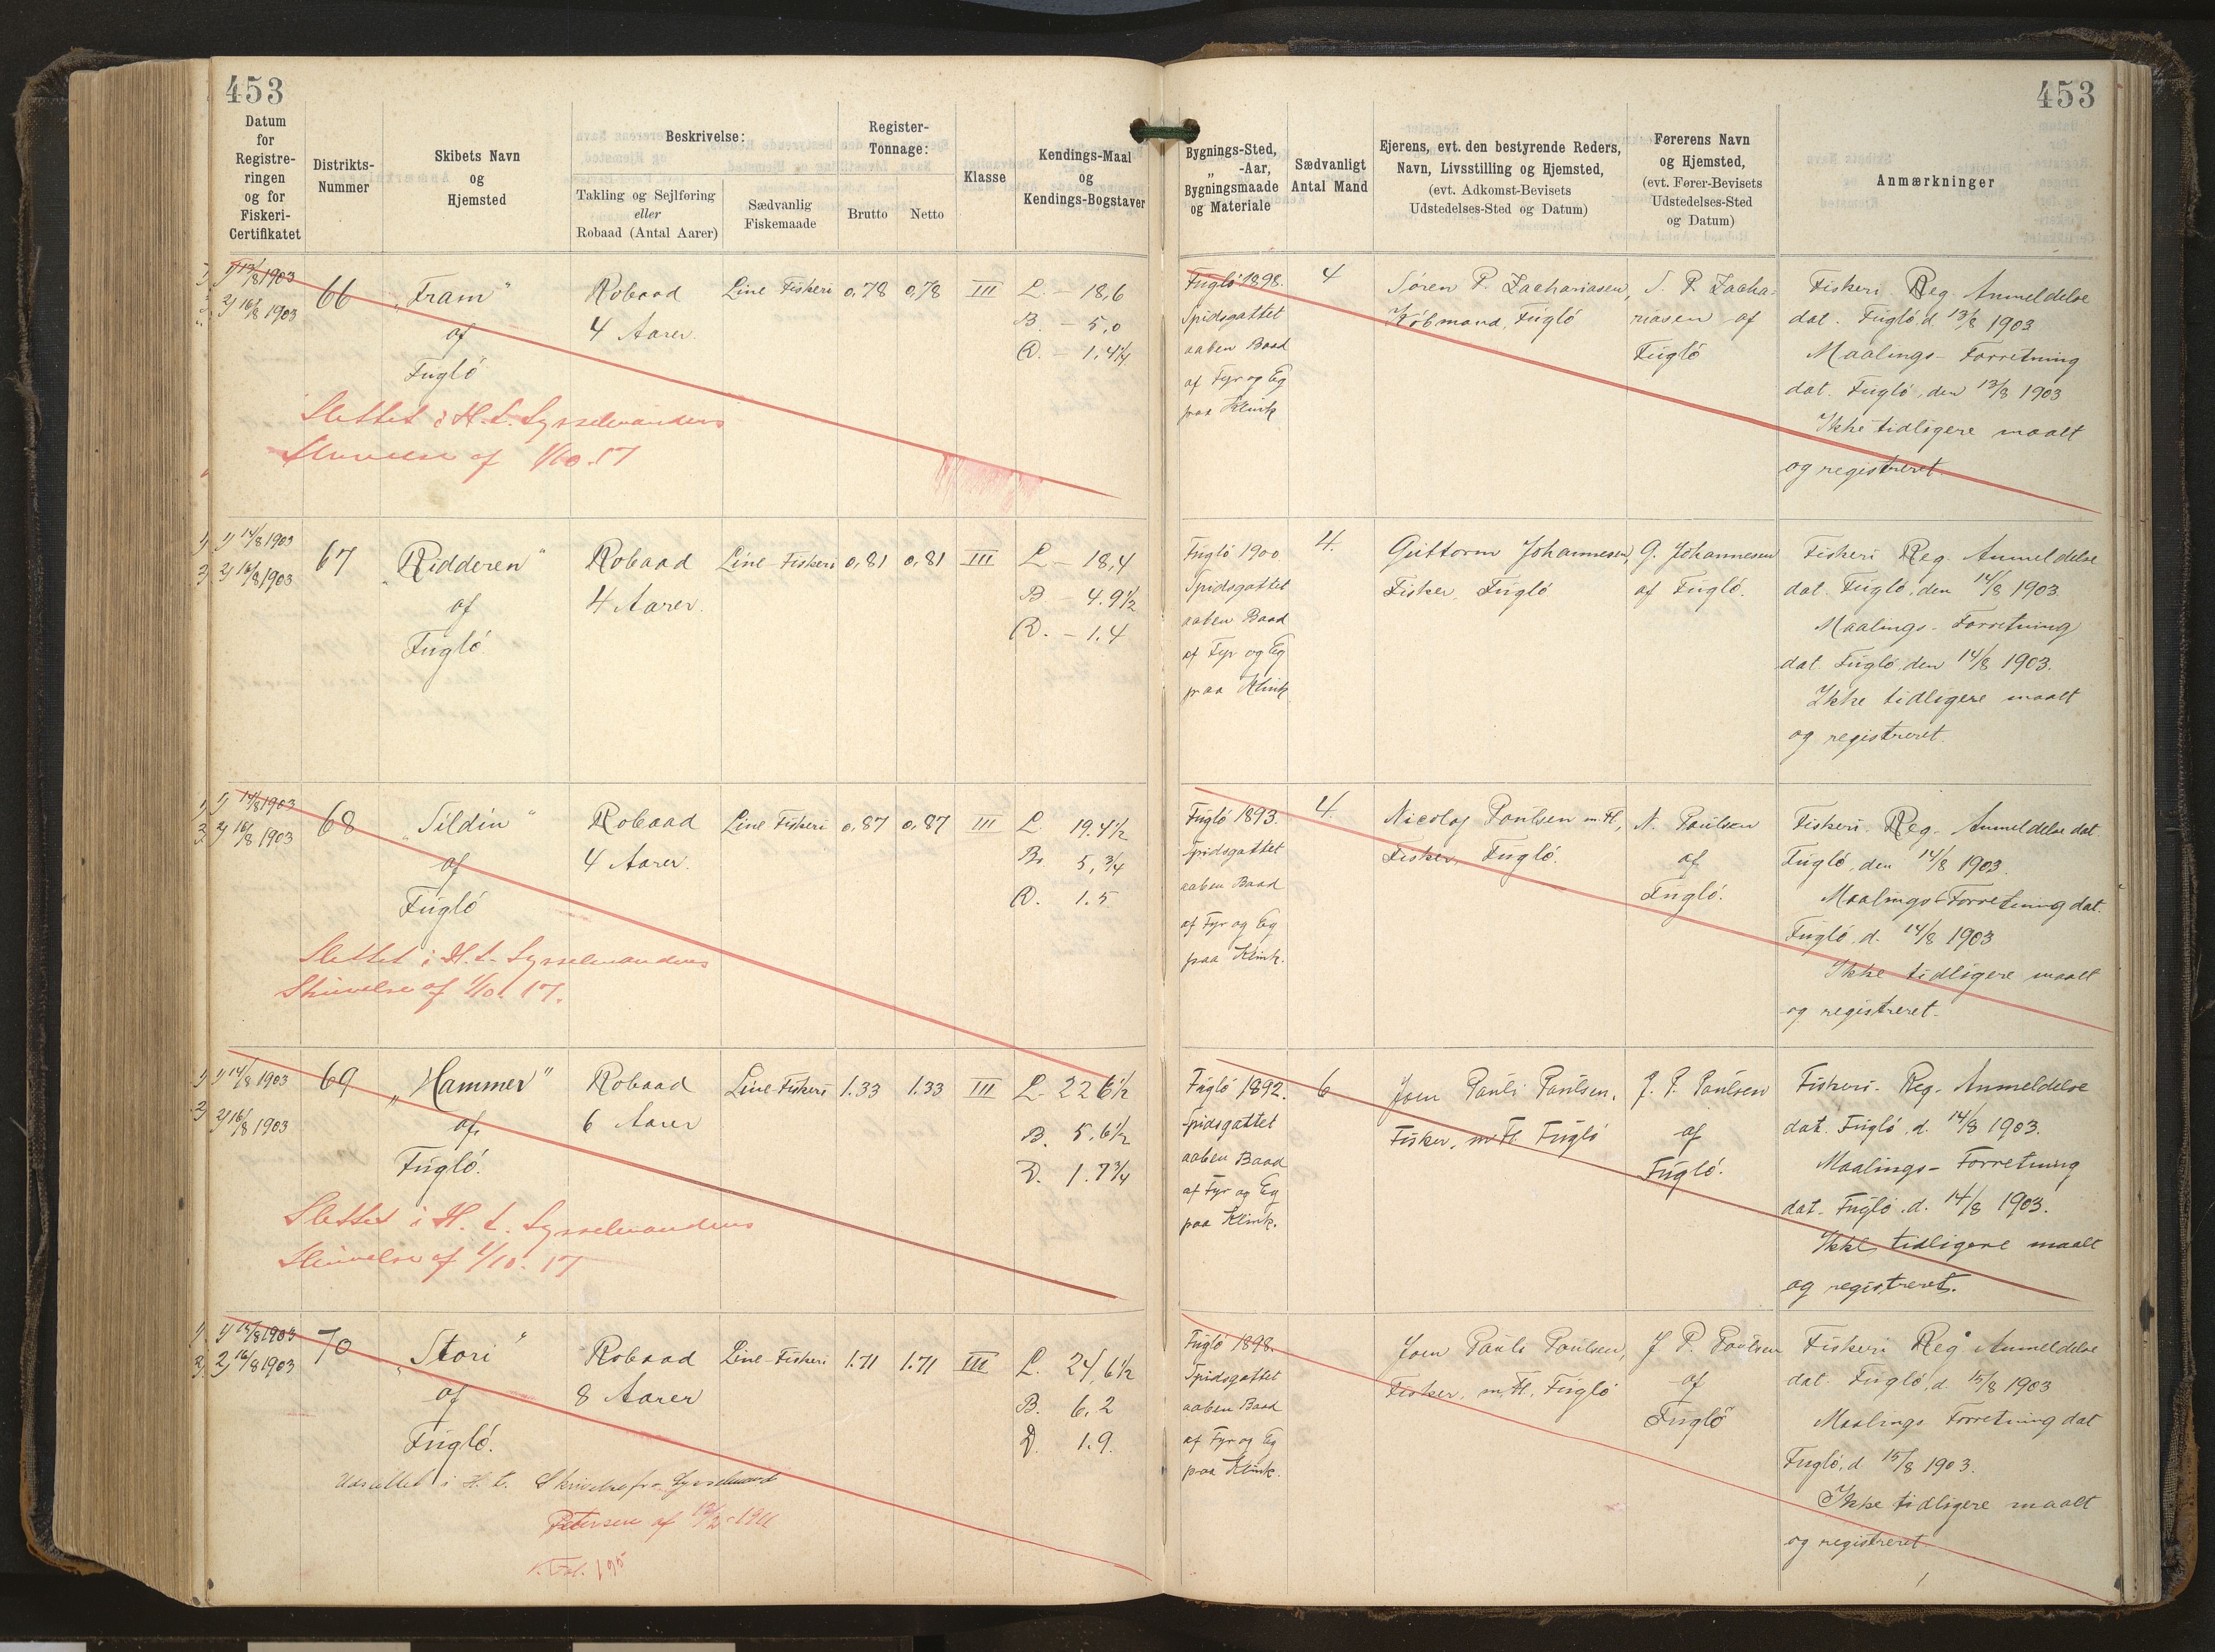 453
453
Datum
for
Registre-
ringen
og for
Fiskeri-
Certifikatet
Distrikts-
Nummer
Skibets Navn
og
Hjemsted
Beskrivelse:
Takling og Sejlføring
eller
Robaad (Antal Aarer)
Sædvanlig
Fiskemaade
Register-
Tonnage:
Brutto
Netto
Klasse
Kendings-Maal
og
Kendings-Bogstaver
Bygnings-Sted,
„ -Aar,
Bygningsmaade
og Materiale
Sædvanligt
Antal Mand
Ejerens, evt. den bestyrende Reders,
Navn, Livsstilling og Hjemsted,
(evt. Adkomst-Bevisets
Udstedelses-Sted og Datum)
Førerens Navn
og Hjemsted,
(evt. Fører-Bevisets
Udstedelses-Sted
og Datum)
Anmærkninger
1) 13/8 1903
2) 16/8 1903
66
„Fram"
af
Fugló
Robaad
4 Aarer.
Line Fiskeri
0,78
0,78
III
L. – 18,6
B. – 5,0
D. – 1.4¼
Slettet i H. t. Sysselmandens
Skrivelse af 1/10.17
Fugló 1898.
Spidsgattet
aaben Baad
af Fyr og Eg
paa Klink
4
Søren P. Zachariasen,
Købmand, Fugló
S. P. Zacha-
riasen af
Fugló
Fiskeri Reg. Anmeldelse
dat. Fugló, d. 13/8 1903
Maalings- Forretning
dat. Fugló, den 13/8 1903
Ikke tidligere maalt
og registreret.
1) 14/8 1903
2) 16/8 1903
67
„Ridderen"
af
Fugló
Robaad
4 Aarer.
Line Fiskeri
0,81
0,81
III
L – 18,4
B – 4.9½
D. – 1.4
Fugló 1900
Spidsgattet
aaben Baad
af Fyr og Eg
paa Klink
4.
Guttorm Johannesen,
Fisker, Fugló
G. Johannesen
af Fugló.
Fiskeri Reg. Anmeldelse
dat. Fugló, den 14/8 1903.
Maalings- Forretning
dat. Fugló, den 14/8 1903.
Ikke tidligere maalt
og registreret.
1) 14/8 1903
2) 16/8 1903
68
„Sildin"
af
Fugló
Robaad
4 Aarer.
Line Fiskeri
0,87
0,87
III
L. 19.4½
B. 5,¾
D. 1.5
Slettet i H. t. Sysselmandens
Skrivelse af 1/10. 17.
Fugló 1893.
Spidsgattet
aaben Baad
af Fyr og Eg
paa Klink.
4.
Nicolaj Poulsen m. Fl,
Fisker, Fugló.
N. Poulsen
af
Fugló.
Fiskeri. Reg. Anmeldelse dat.
Fugló, den 14/8 1903.
Maalings Forretning dat.
Fugló, d. 14/8 1903
Ikke tidligere maalt
og registreret.
1) 14/8 1903
2) 16/8 1903
69
„Hammer"
af
Fugló.
Robaad
6 Aarer
Line Fiskeri
1.33
1.33
III
L. 22 6½
B. 5,6½
D. 1.7¾
Slettet i H. t. Sysselmandens
Skrivelse af 1/10. 17
Fugló 1892.
Spidsgattet
aaben Baad
af Fyr og Eg
paa Klink.
6
Joen Pauli Poulsen,
Fisker, m Fl. Fugló
J. P. Poulsen
af
Fugló.
Fiskeri- Reg- Anmeldelse
dat. Fugló, d. 14/8 1903.
Maalings- Forretning
dat. Fugló, d. 14/8 1903.
Ikke tidligere maalt
og registreret.
1) 15/8 1903
2) 16/8 1903
70
„Stori"
af
Fugló.
Robaad
8 Aarer
Line Fiskeri
1.71
1.71
III
L. 24,6½
B. 6,2
D. 1.9.
Udslettet i H. t. Skrivelse fra Sysselmand
Petersen af
Fugló 1898.
Spidsgattet
aaben Baad
af Fyr og Eg
paa Klink.
Joen Pauli Poulsen,
Fisker, m, Fl, Fugló
J P. Poulsen
af
Fugló
Fiskeri Reg Anmeldelse
dat. Fugló, d. 15/8 1903
Maalings Forretning dat
Fugló, d 15/8 1903.
Ikke tidligere maalt
og registreret